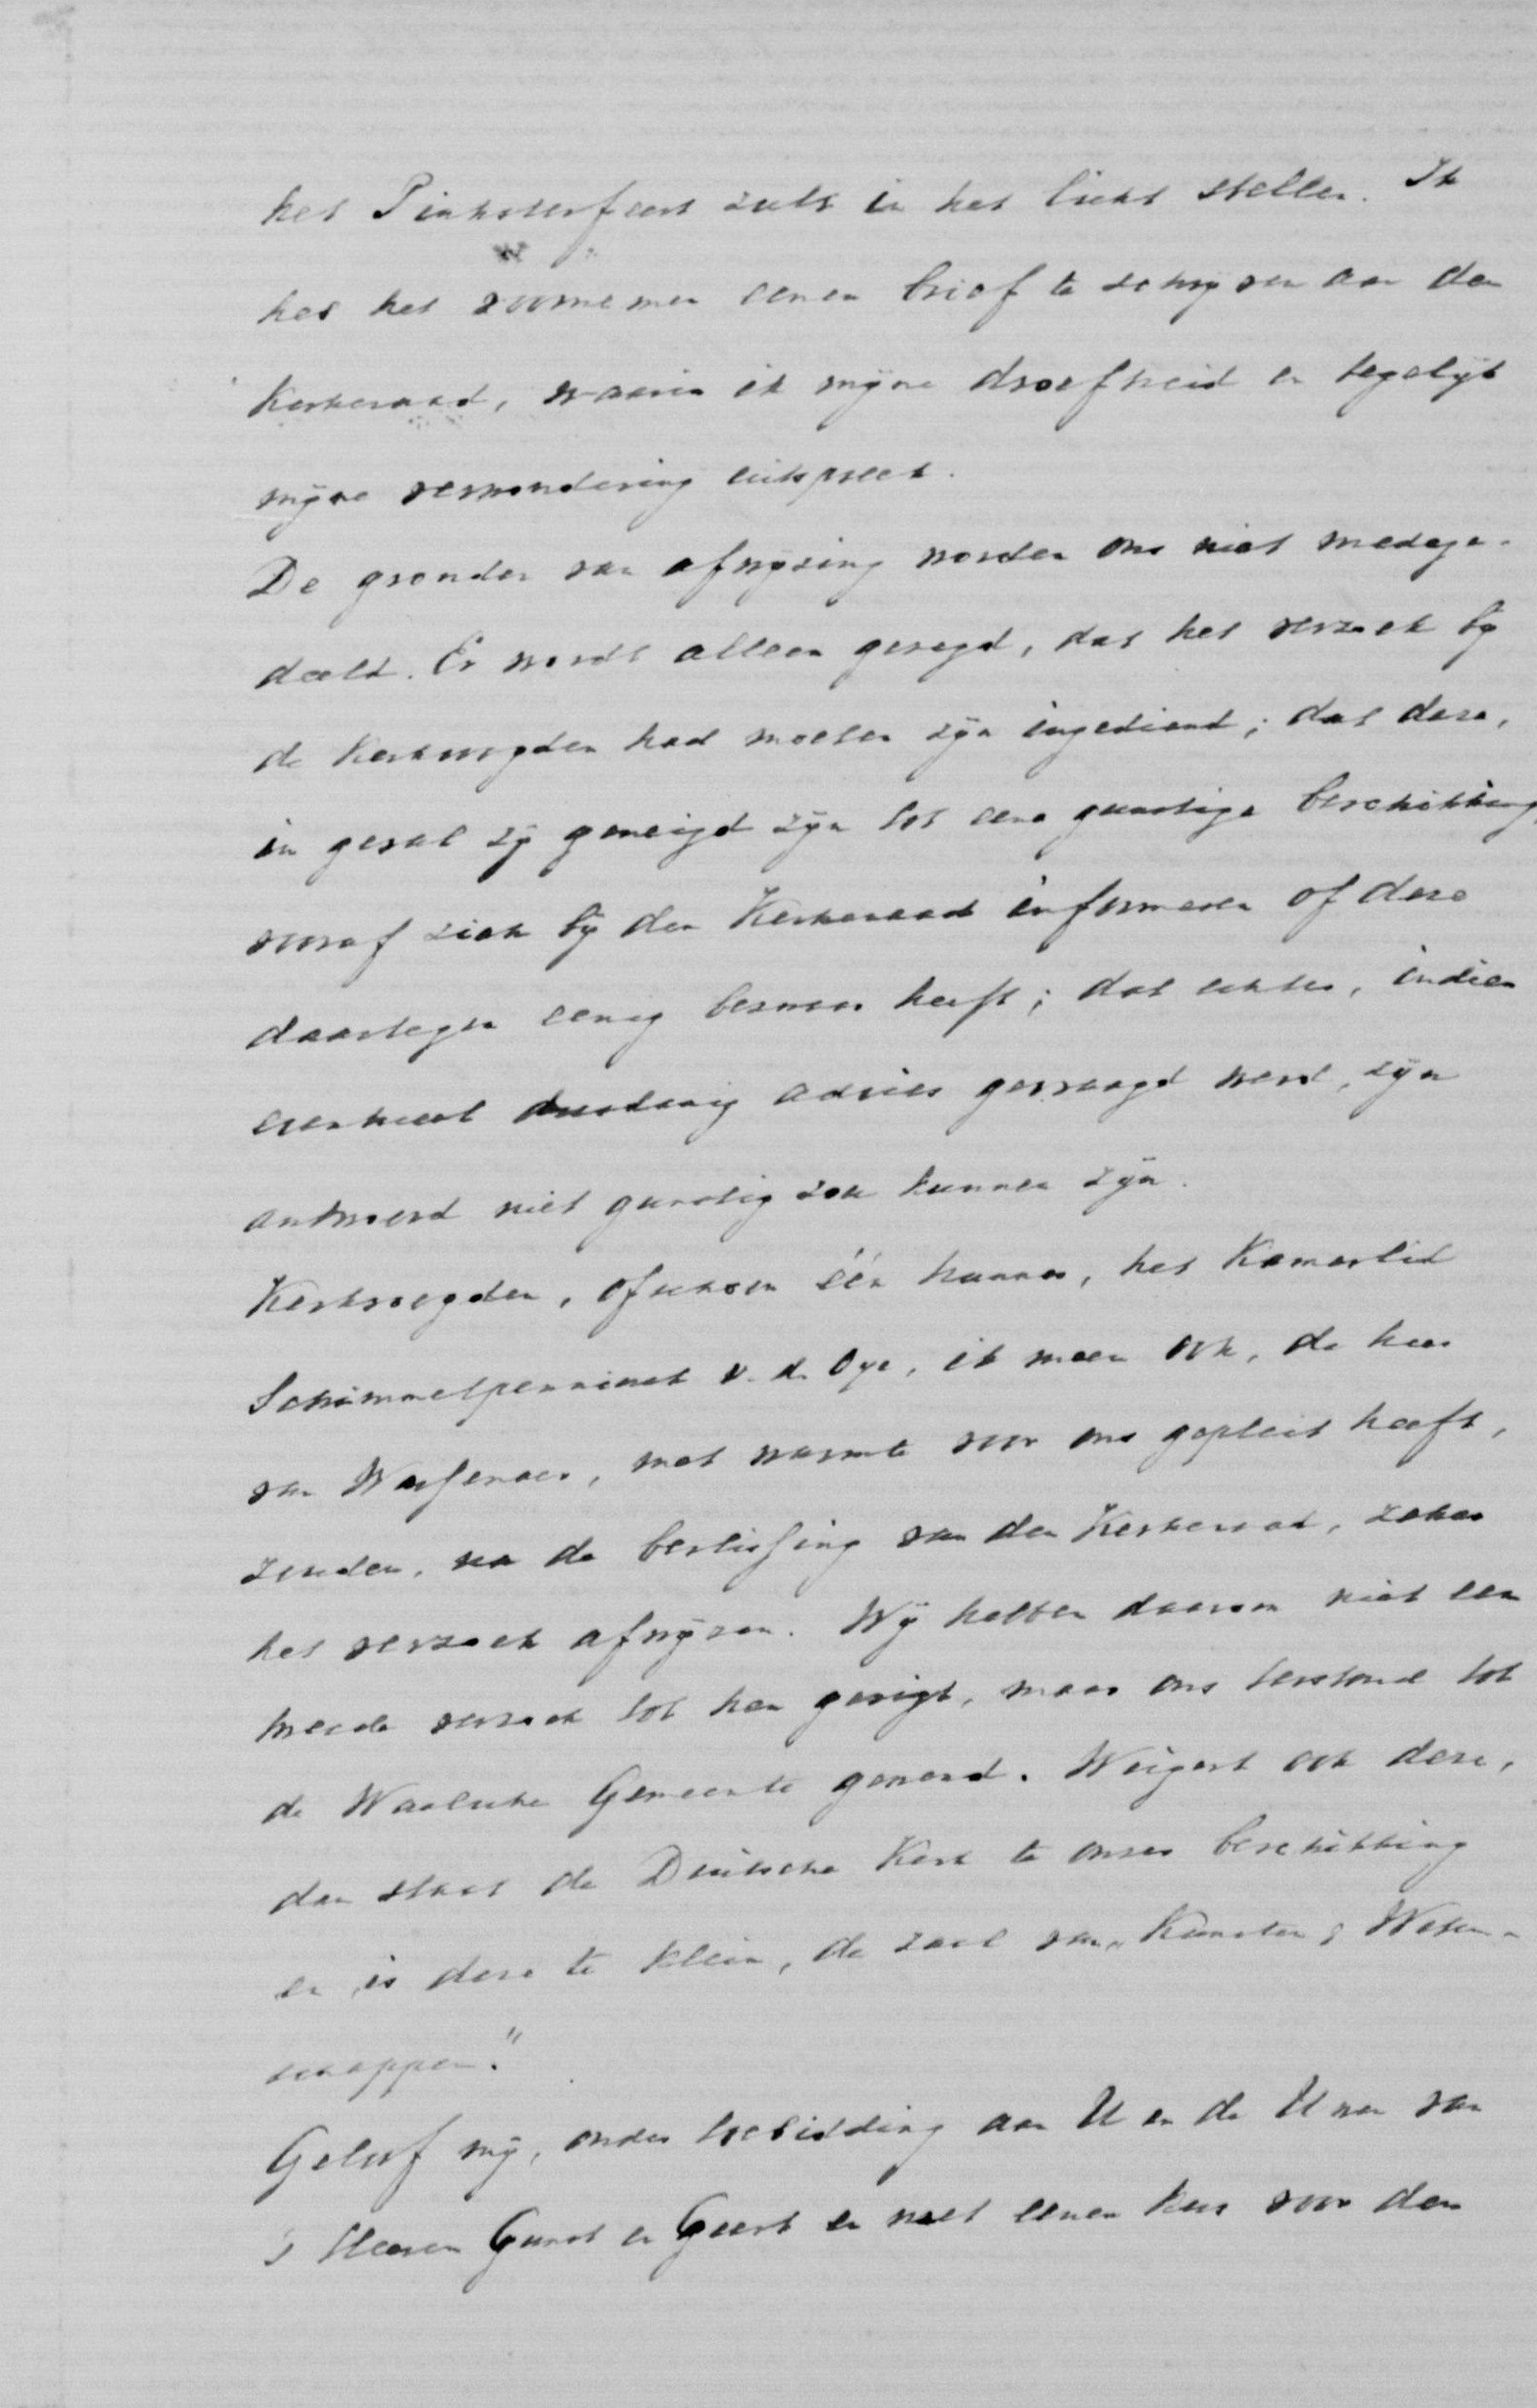 het Pinksterfeest zult in het licht stellen. Ik
heb het voornemen eenen brief te schrijven aan den
Kerkeraad, waarin ik mijne droefheid en tegelijk
mijne verwondering uitspreek.
De gronden van afwijzing worden ons niet medege-
deeld. Er wordt alleen gezegd, dat het verzoek bij
de Kerkvoogden had moeten zijn ingediend; dat deze,
in geval zij geneigd zijn tot eene gunstige beschikking,
vooraf zich bij den Kerkeraad informeren of deze
daartegen eenig bezwaar heeft; dat echter, indien
eventueel dusdanig advies gevraagd werd, zijn
antwoord niet gunstig zou kunnen zijn.
Kerkvoogden, ofschoon één hunner, het Kamerlid
Schimmelpenninck v. d. Oye, ik meen ook, de heer
van Wassenaer, met warmte voor ons gepleit heeft,
zouden, na de beslissing van den Kerkeraad, zeker
het verzoek afwijzen. Wij hebben daarom niet een
tweede verzoek tot hen gerigt, maar ons terstond tot
de Waalsche Gemeente gewend. Weigert ook deze,
dan staat de Duitsche Kerk te onzer beschikking
en is deze te klein, de zaal van „Kunsten & Weten-
schappen."
Geloof mij, onder toebidding aan U en de Uwen van
's Heeren Gunst en Geest en met eenen kus voor den